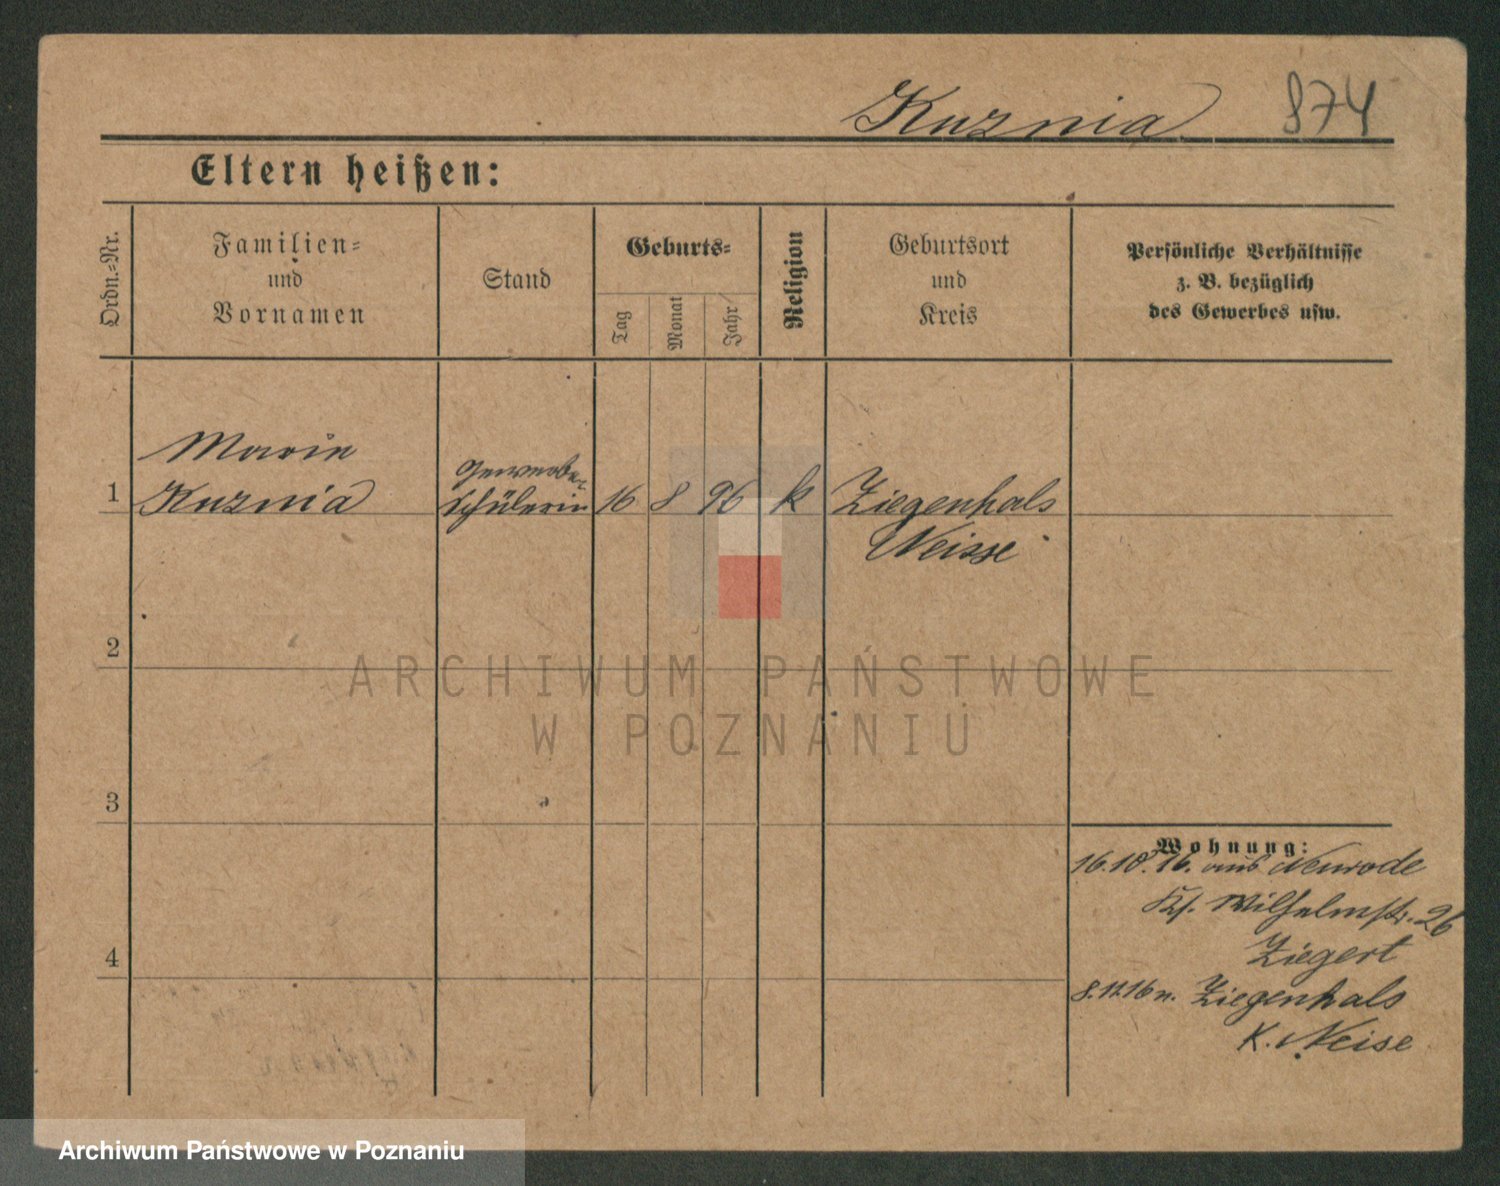 Kuznia 874
Eltern heißen:
Ordn.-Nr.
Familien-
und
Vornamen
Stand
Geburts-
Tag
Monat
Jahr
Religion
Geburtsort
und
Kreis
Persönliche Verhältnisse
z. B. bezüglich
des Gewerbes usw.
Marie
1 Kuznia
Gewerbe-
schülerin
16 8 96 k Ziegenhals
Neisse
2
3
4
Wohnung:
16.10.16. aus Neurode
Wilhelmstr. 26
Ziegert
8.11.16 n. Ziegenhals
K. Neise
ARCHIWUM PAŃSTWOWE
W POZNANIU
Archiwum Państwowe w Poznaniu